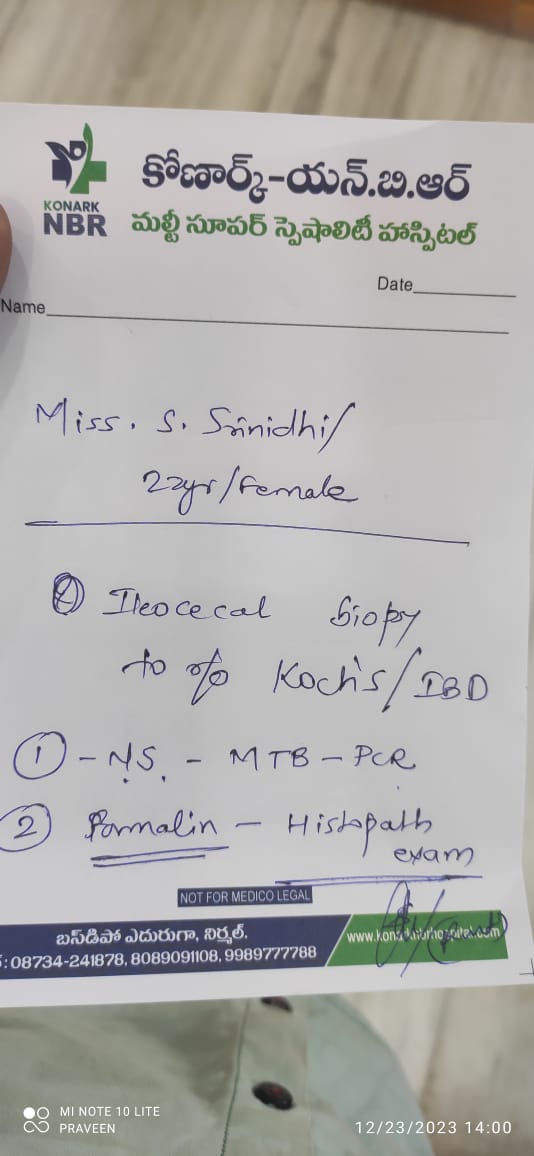 కోణార్క్-యన్.బి.ఆర్
KONARK
NBR
మల్టీ సూపర్ స్పెషాలిటీ హాస్పిటల్
Date
Name
Miss. S. Srinidhi/
22yr/Female
Ileocecal biopsy
to r/o Koch's/IBD
① - N.S. - MTB - PCR
② Formalin - Histopath
exam
NOT FOR MEDICO LEGAL
బస్‌డిపో ఎదురుగా, నిర్మల్.
: 08734-241878, 8089091108, 9989777788
www.konarknbrhospital.com
MI NOTE 10 LITE
PRAVEEN
12/23/2023 14:00